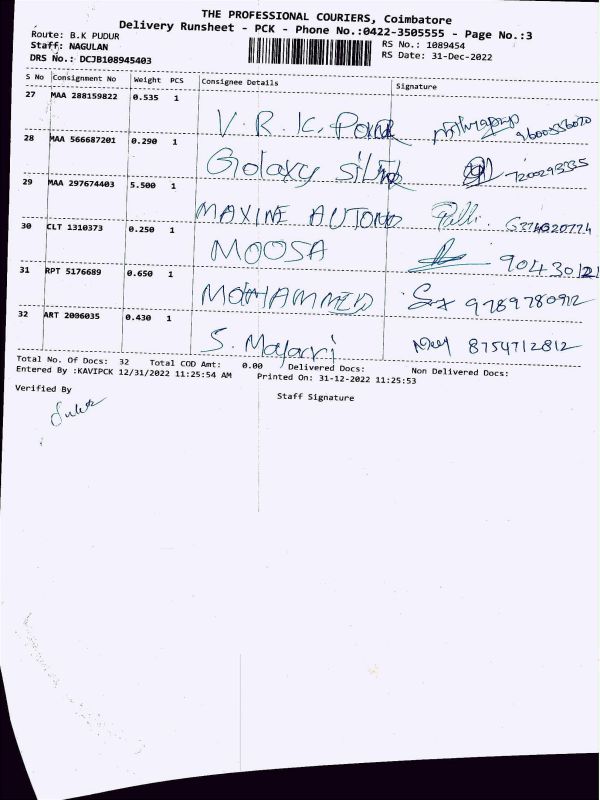 THE PROFESSIONAL COURIERS, Coimbatore
Delivery Runsheet - PCK - Phone No.:0422-3505555 - Page No.:3
Route: B.K PUDUR
Staff: NAGULAN RS No.: 1089454
DRS No.: DCJB108945403 RS Date: 31-Dec-2022
S No Consignment No Weight PCS Consignee Details Signature
27 MAA 288159822 0.535 1
V.R.K. 9600556070
28 MAA 566687201 0.290 1
Galaxy 7200293535
29 MAA 297674403 5.500 1
MAXINE AUTOMO
30 CLT 1310373 0.250 1
MOOSA 90430121
31 RPT 5176689 0.650 1
MOHAMMED 9789780912
32 ART 2006035 0.430 1
S. 8754712812
Total No. Of Docs: 32 Total COD Amt: 0.00 Delivered Docs: Non Delivered Docs:
Entered By :KAVIPCK 12/31/2022 11:25:54 AM Printed On: 31-12-2022 11:25:53
Verified By Staff Signature